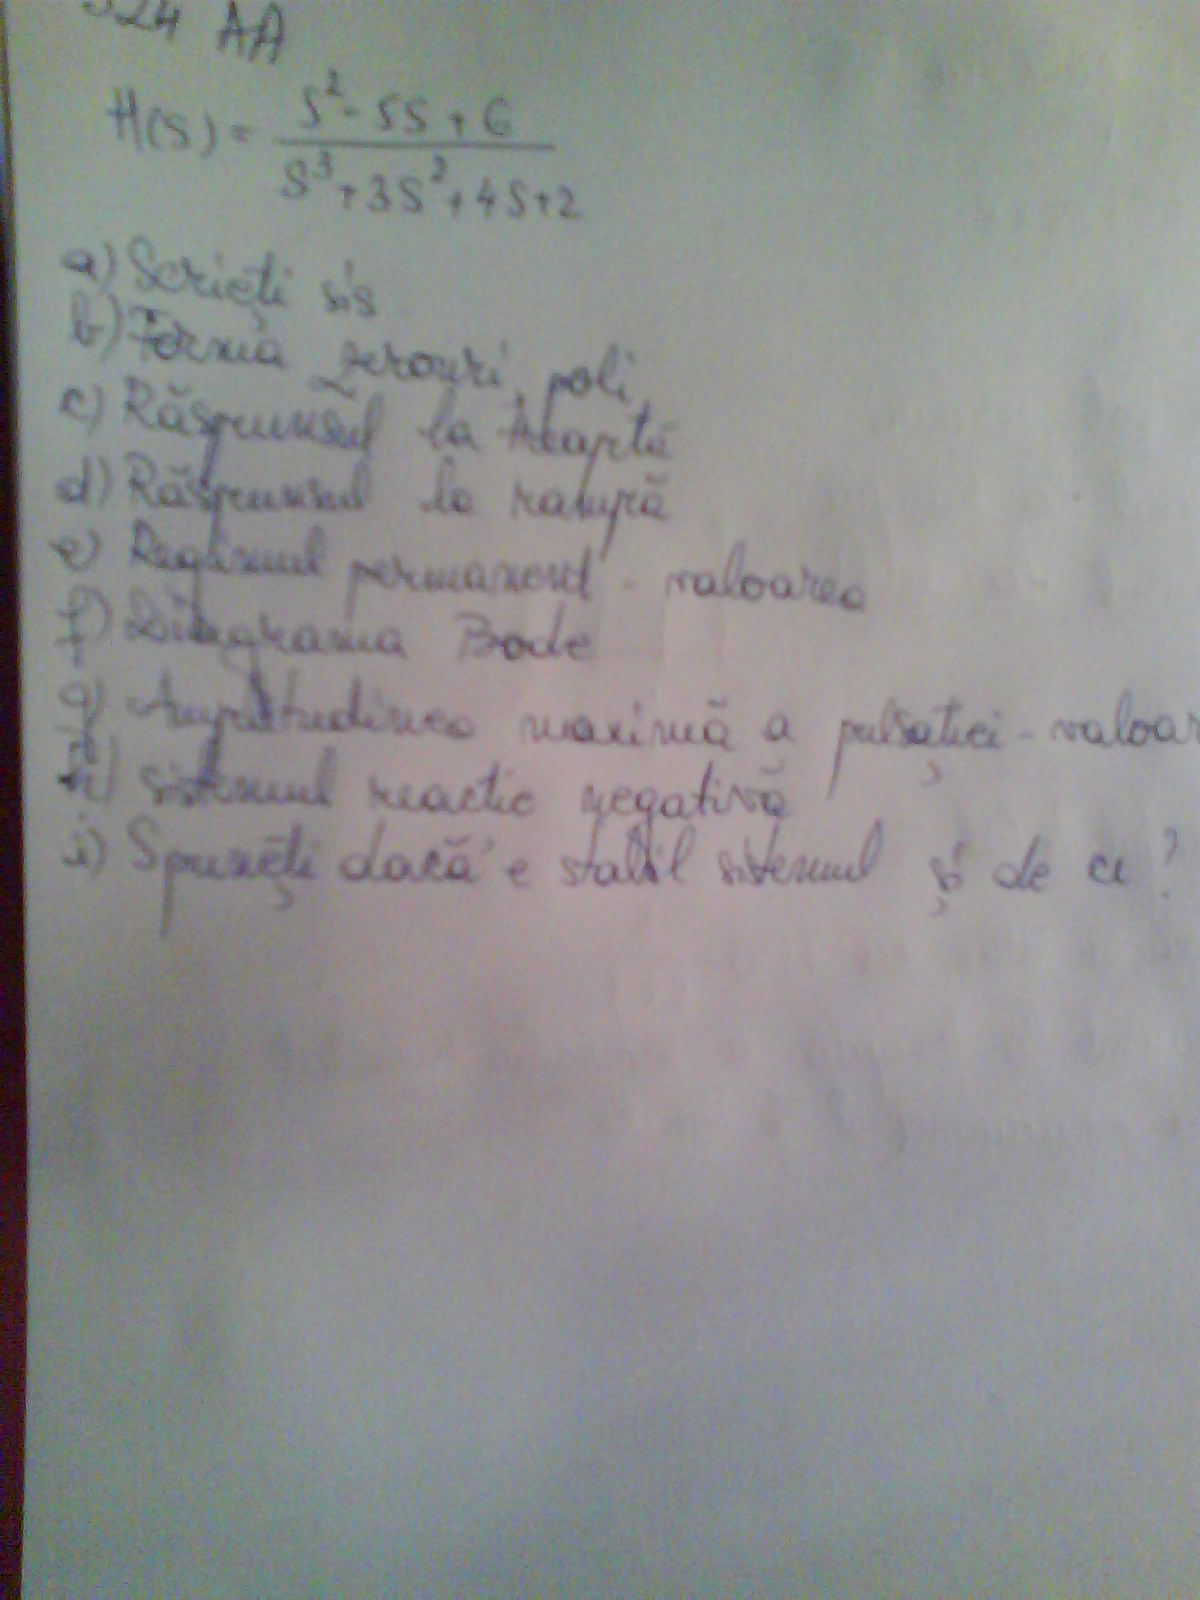 324 AA
H(s) = \frac{s^2 - 5s + 6}{s^3 + 3s^2 + 4s + 2}
a) Scrieți sis
b) Forma zerouri, poli,
c) Răspunsul la treaptă
d) Răspunsul la rampă
e) Regimul permanent - valoarea
f) Diagrama Bode
g) Amplitudinea maximă a pulsației - valoar
h) sistemul reactie negativă
i) Spuneți dacă e stabil sistemul și de ce?